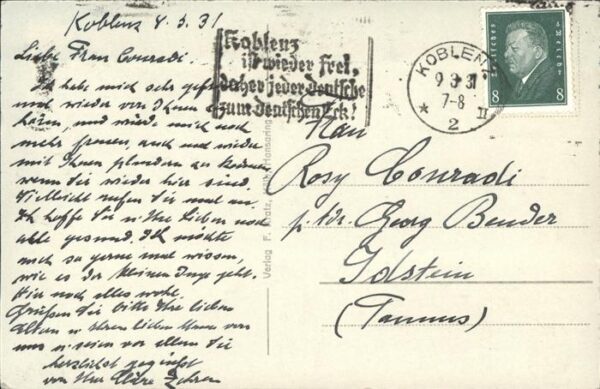 Koblenz 8.3.31
Liebe Frau Conradi.
Ich habe mich sehr gefreut
mal wieder von Ihnen zu
hören, und würde mich noch
mehr freuen, auch mal wieder
mit Ihnen plaudern zu können
wenn Sie wieder hier sind.
Vielleicht rufen Sie mal an.
Ich hoffe Sie u Ihre Lieben noch
alle gesund. Ich möchte
auch so gerne mal wissen,
wie es der kleinen Inge geht.
Hier noch alles wohl.
Grüßen Sie bitte Ihre lieben
Eltern u Ihren lieben Mann von
uns u seien vor allem Sie
herzlichst gegrüßt
von Ihrer Cläre
Koblenz
ist wieder frei,
daher jeder Deutsche
zum Deutschen Eck!
KOBLENZ
9 3 31
7-8 II
* 2
Deutsches Reich
8 8
Verlag F. Kratz, Köln, Hansaring
Frau
Rosy Conradi
p. Adr. Georg Bender
Idstein
(Taunus)